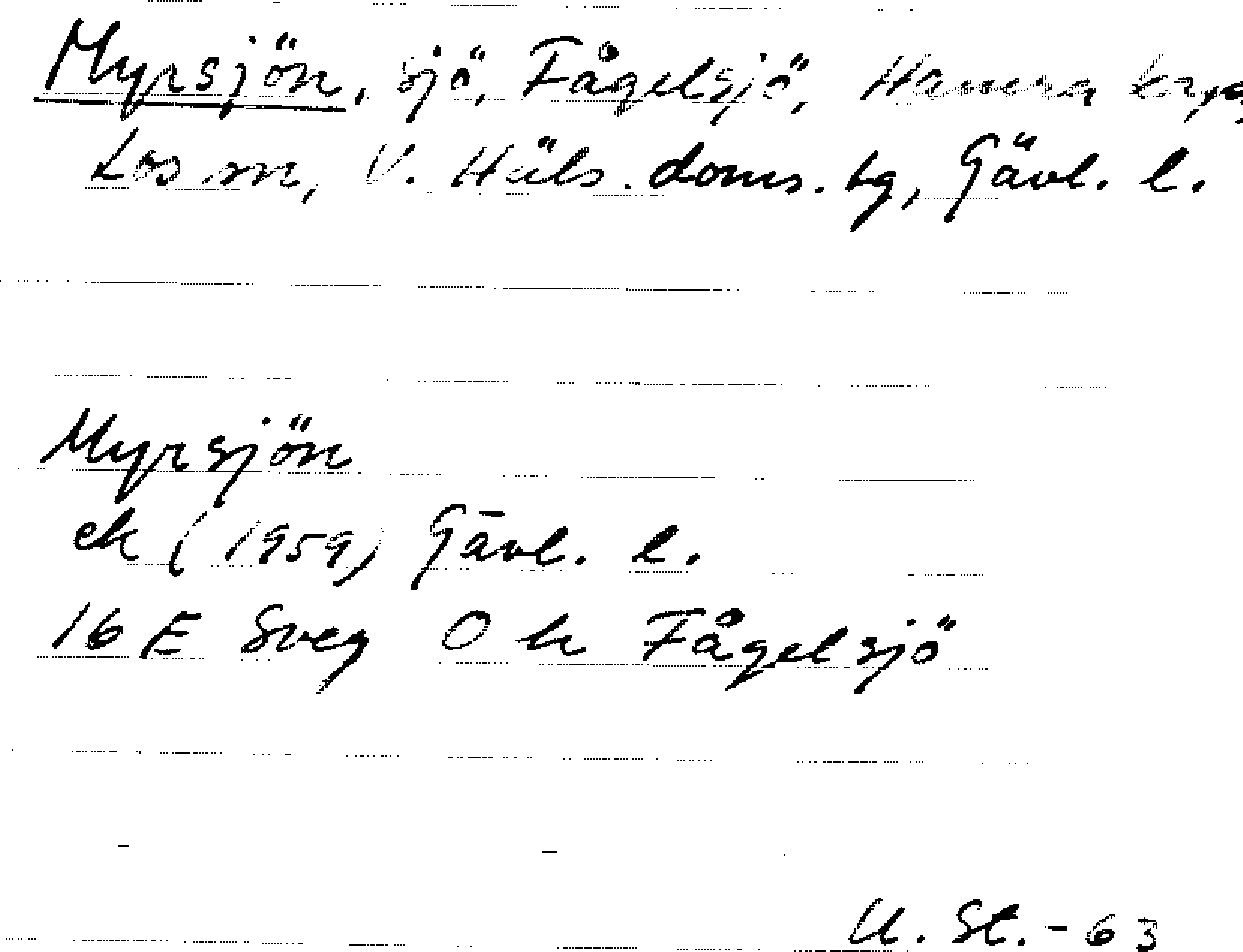 Myrsjön, sjö, Fågelsjö, Hamra
Los sn, V. Häls. doms. tg, Gävl. l.
Myrsjön
ek (1959) Gävl. l.
16 E Sveg O h Fågelsjö
U. St. - 63